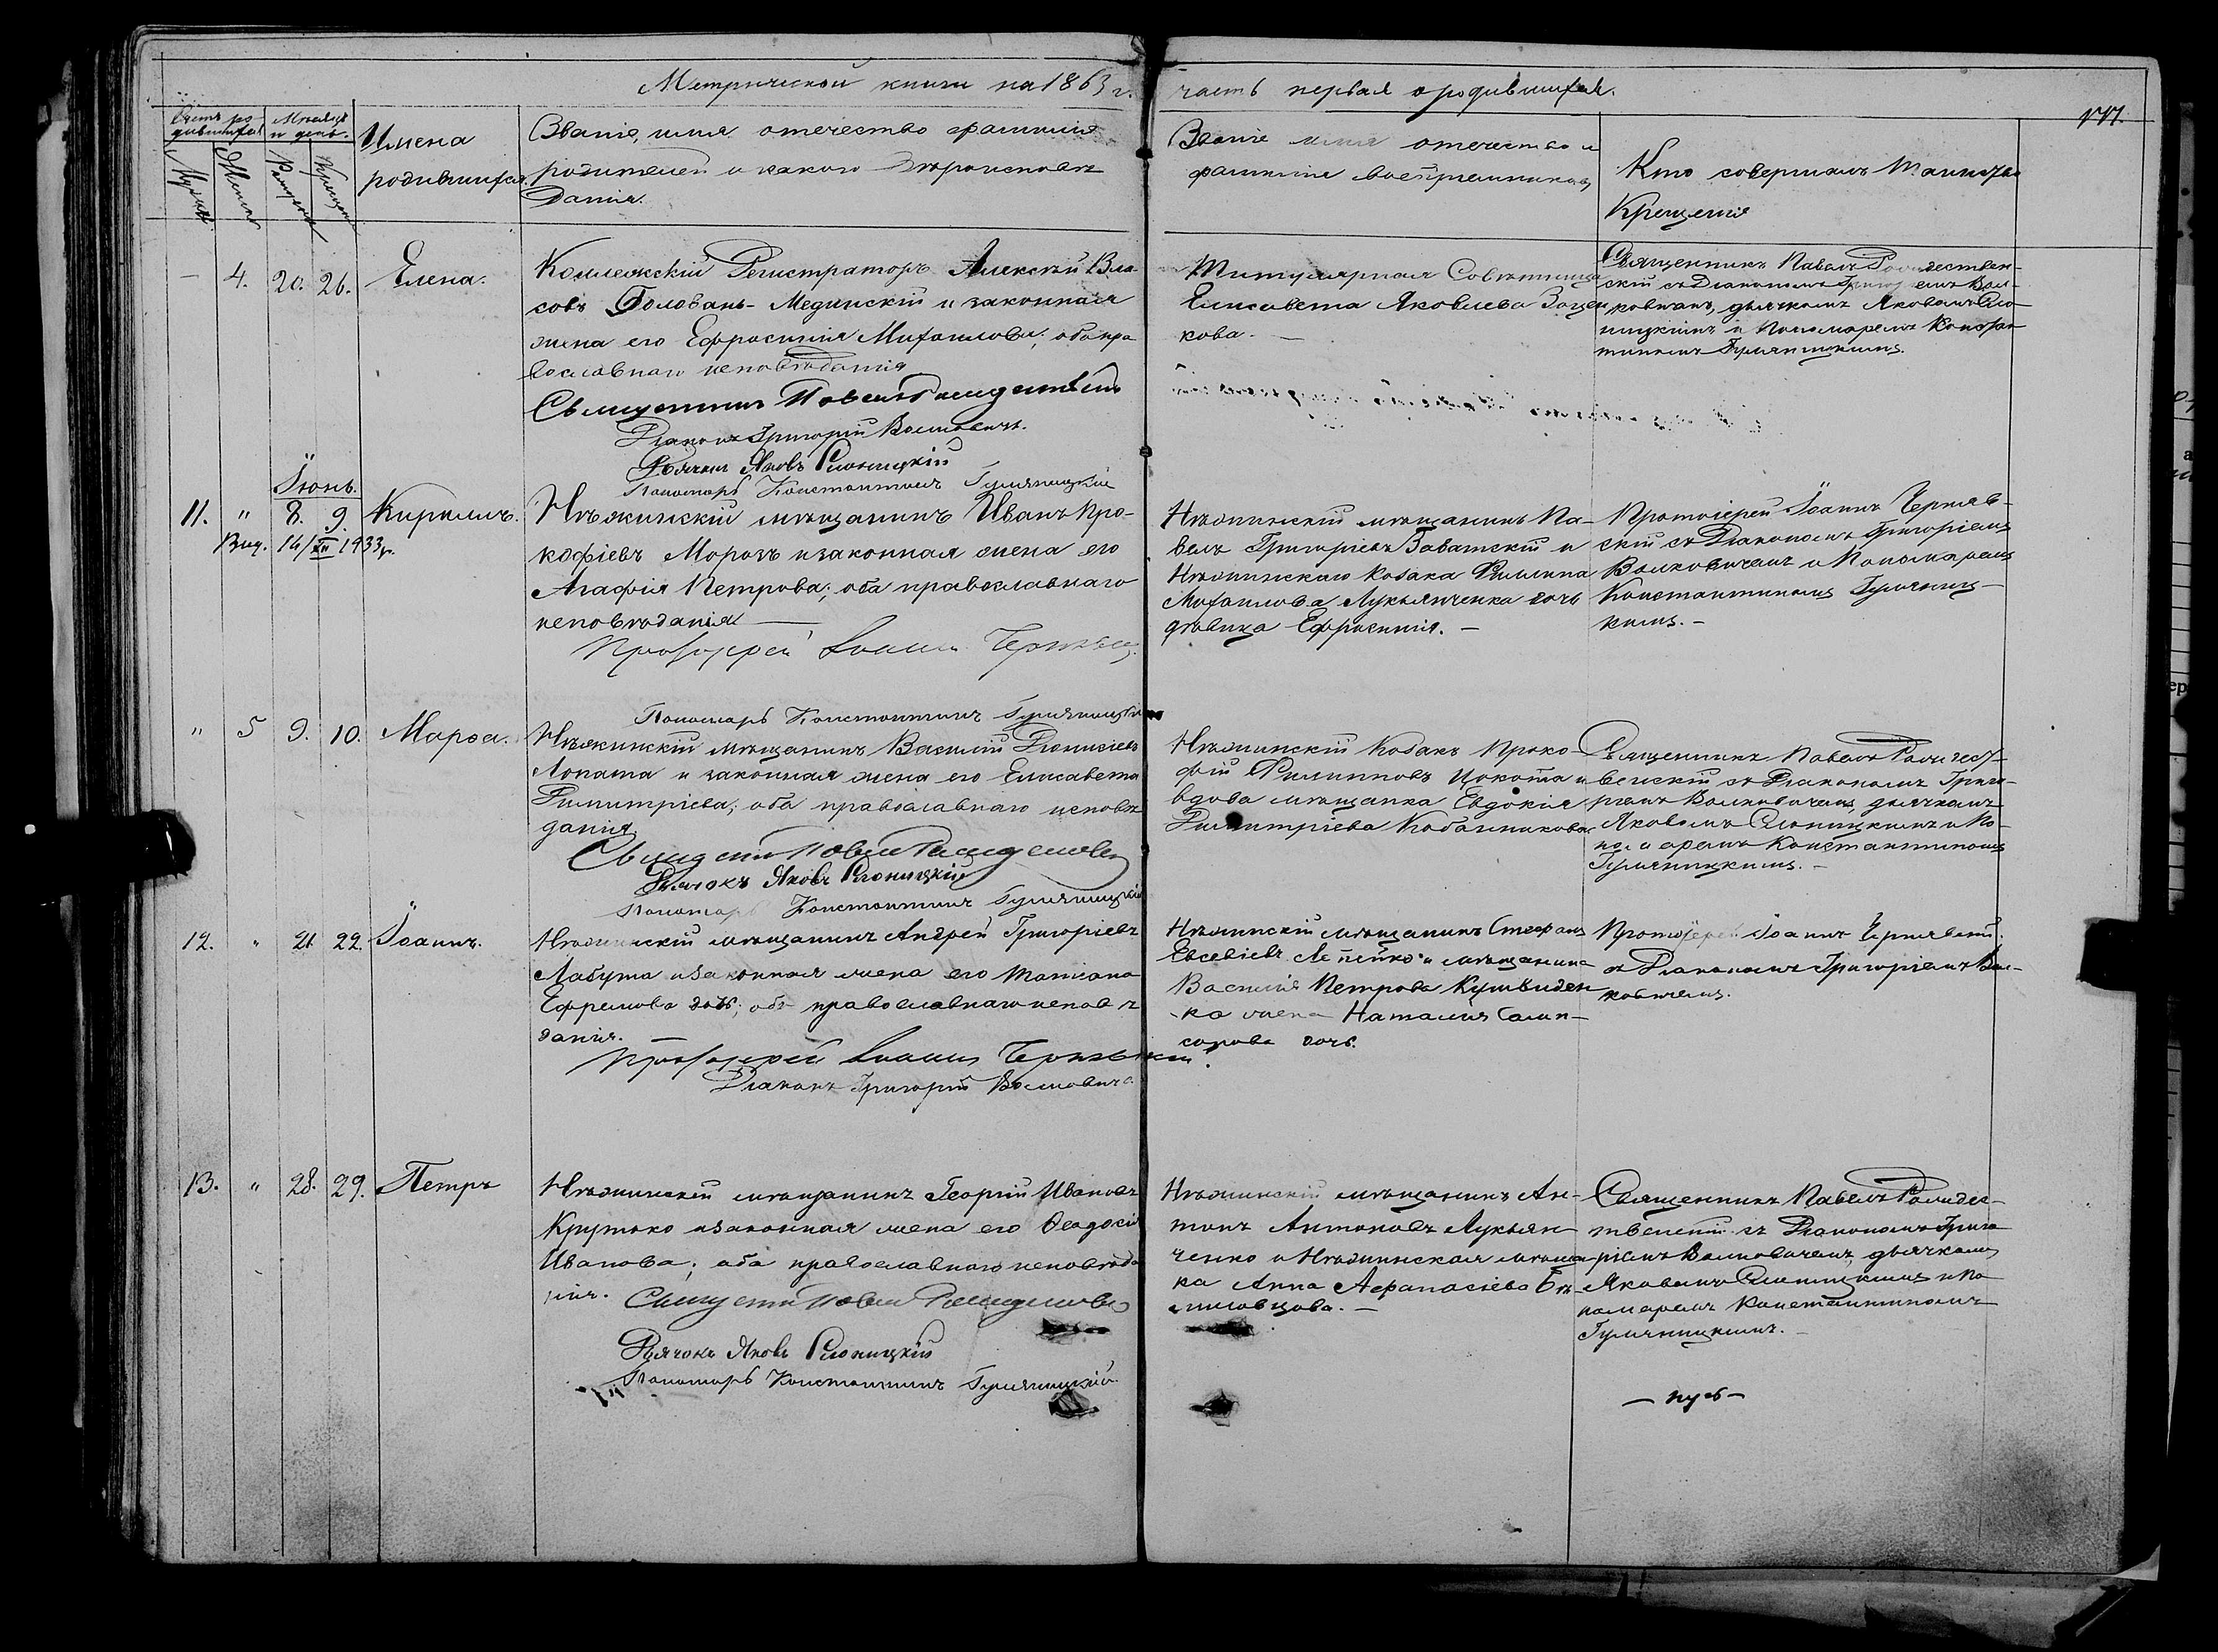 Метрической книги на 1863 г. часть первая о родившихся.
Счетъ ро-
дившихся
Мѣсяцъ
и день.
Мужеск
Женск
Рожденія
Крещенія
Имена
родившихся.
Званіе, имя отечество фамилія
родителей и какого вѣроисповѣ
данія.
Званіе имя отечество и
фамилія воспріемниковъ
Кто совершалъ таинство
Крещенія
— 4. 20. 26. Елена.
Коллежскій Регистраторъ Алексѣй Вла-
совъ Головань-Мединскій и законная
жена его Ефросинія Михаилова; оба пра
вославнаго исповѣданія
Священникъ Павелъ Рождественскій
Діаконъ Григорій Волковичъ.
Дьячокъ Яковъ Слоницкій
Пономарь Константинъ Гуляницкій
Титулярная Совѣтница
Елисавета Яковлева
кова. —
Священникъ Павелъ Рождествен-
скій съ Діакономъ Григоріемъ Вол-
ковичемъ, дьячкомъ Яковомъ Сло-
ницкимъ и Пономаремъ Констан
тиномъ Гуляницкимъ.
Іюнь.
11. " 8. 9. Кириллъ.
Вид. 14/XII 1933 р.
Нѣжинскій мѣщанинъ Иванъ Про-
кофіевъ Морозъ и законная жена его
Агафія Петрова; оба православнаго
исповѣданія —
Протоіерей Іоаннъ Чернявск
Пономарь Константинъ Гуляницкій
Нѣжинскій мѣщанинъ Па-
велъ Григоріевъ Заватскій и
Нѣжинскаго Козака Филиппа
Михаилова Лукьянченка дочь
дѣвица Ефросинія. —
Протоіерей Іоаннъ Черняв-
скій съ Діакономъ Григоріемъ
Волковичемъ и Пономаремъ
Константиномъ Гуляниц-
кимъ. —
" 5 9. 10. Марѳа.
Нѣжинскій мѣщанинъ Василій Діонисіевъ
Лопата и законная жена его Елисавета
Димитріева; оба православнаго исповѣ
данія
Священникъ Павелъ Рождественскій
Дьячокъ Яковъ Слоницкій
Пономарь Константинъ Гуляницкій
Нѣжинскій Козакъ Проко-
фій Филипповъ Цокота и
вдова мѣщанка Евдокія
Димитріева Кобзникова
Священникъ Павелъ Рождест-
венскій съ Діакономъ Григо-
ріемъ Волковичемъ, дьячкомъ
Яковомъ Слоницкимъ и По-
номаремъ Константиномъ
Гуляницкимъ. —
12. " 21 22. Іоаннъ.
Нѣжинскій мѣщанинъ Андрей Григоріевъ
Лабута и законная жена его Татіана
Ефремова дочь; оба православнаго исповѣ
данія.
Протоіерей Іоаннъ Чернявскій.
Діаконъ Григорій Волковичъ
Нѣжинскій мѣщанинъ Стефанъ
Евсевіевъ Лепейко и мѣщанина
Василія Петрова
-ка жена Наталія Самп-
сонова дочь.
Протоіерей Іоаннъ Чернявскій.
съ Діакономъ Григоріемъ Вол-
ковичемъ.
13. " 28. 29. Петръ
Нѣжинскій мѣщанинъ Георгій Ивановъ
Крутько и законная жена его Ѳеодосія
Иванова; оба православнаго исповѣда
нія.
Священникъ Павелъ Рождественскій
Дьячокъ Яковъ Слоницкій
Пономарь Константинъ Гуляницкій.
Нѣжинскій мѣщанинъ Ан-
тонъ Антоновъ Лукьян-
ченко и Нѣжинская мѣщан
ка Анна Афанасіева Бѣ-
лиловцова. —
Священникъ Павелъ Рождес-
твенскій съ Діакономъ Григо
ріемъ Волковичемъ, дьячкомъ
Яковомъ Слоницкимъ и По
номаремъ Константиномъ
Гуляницкимъ. —